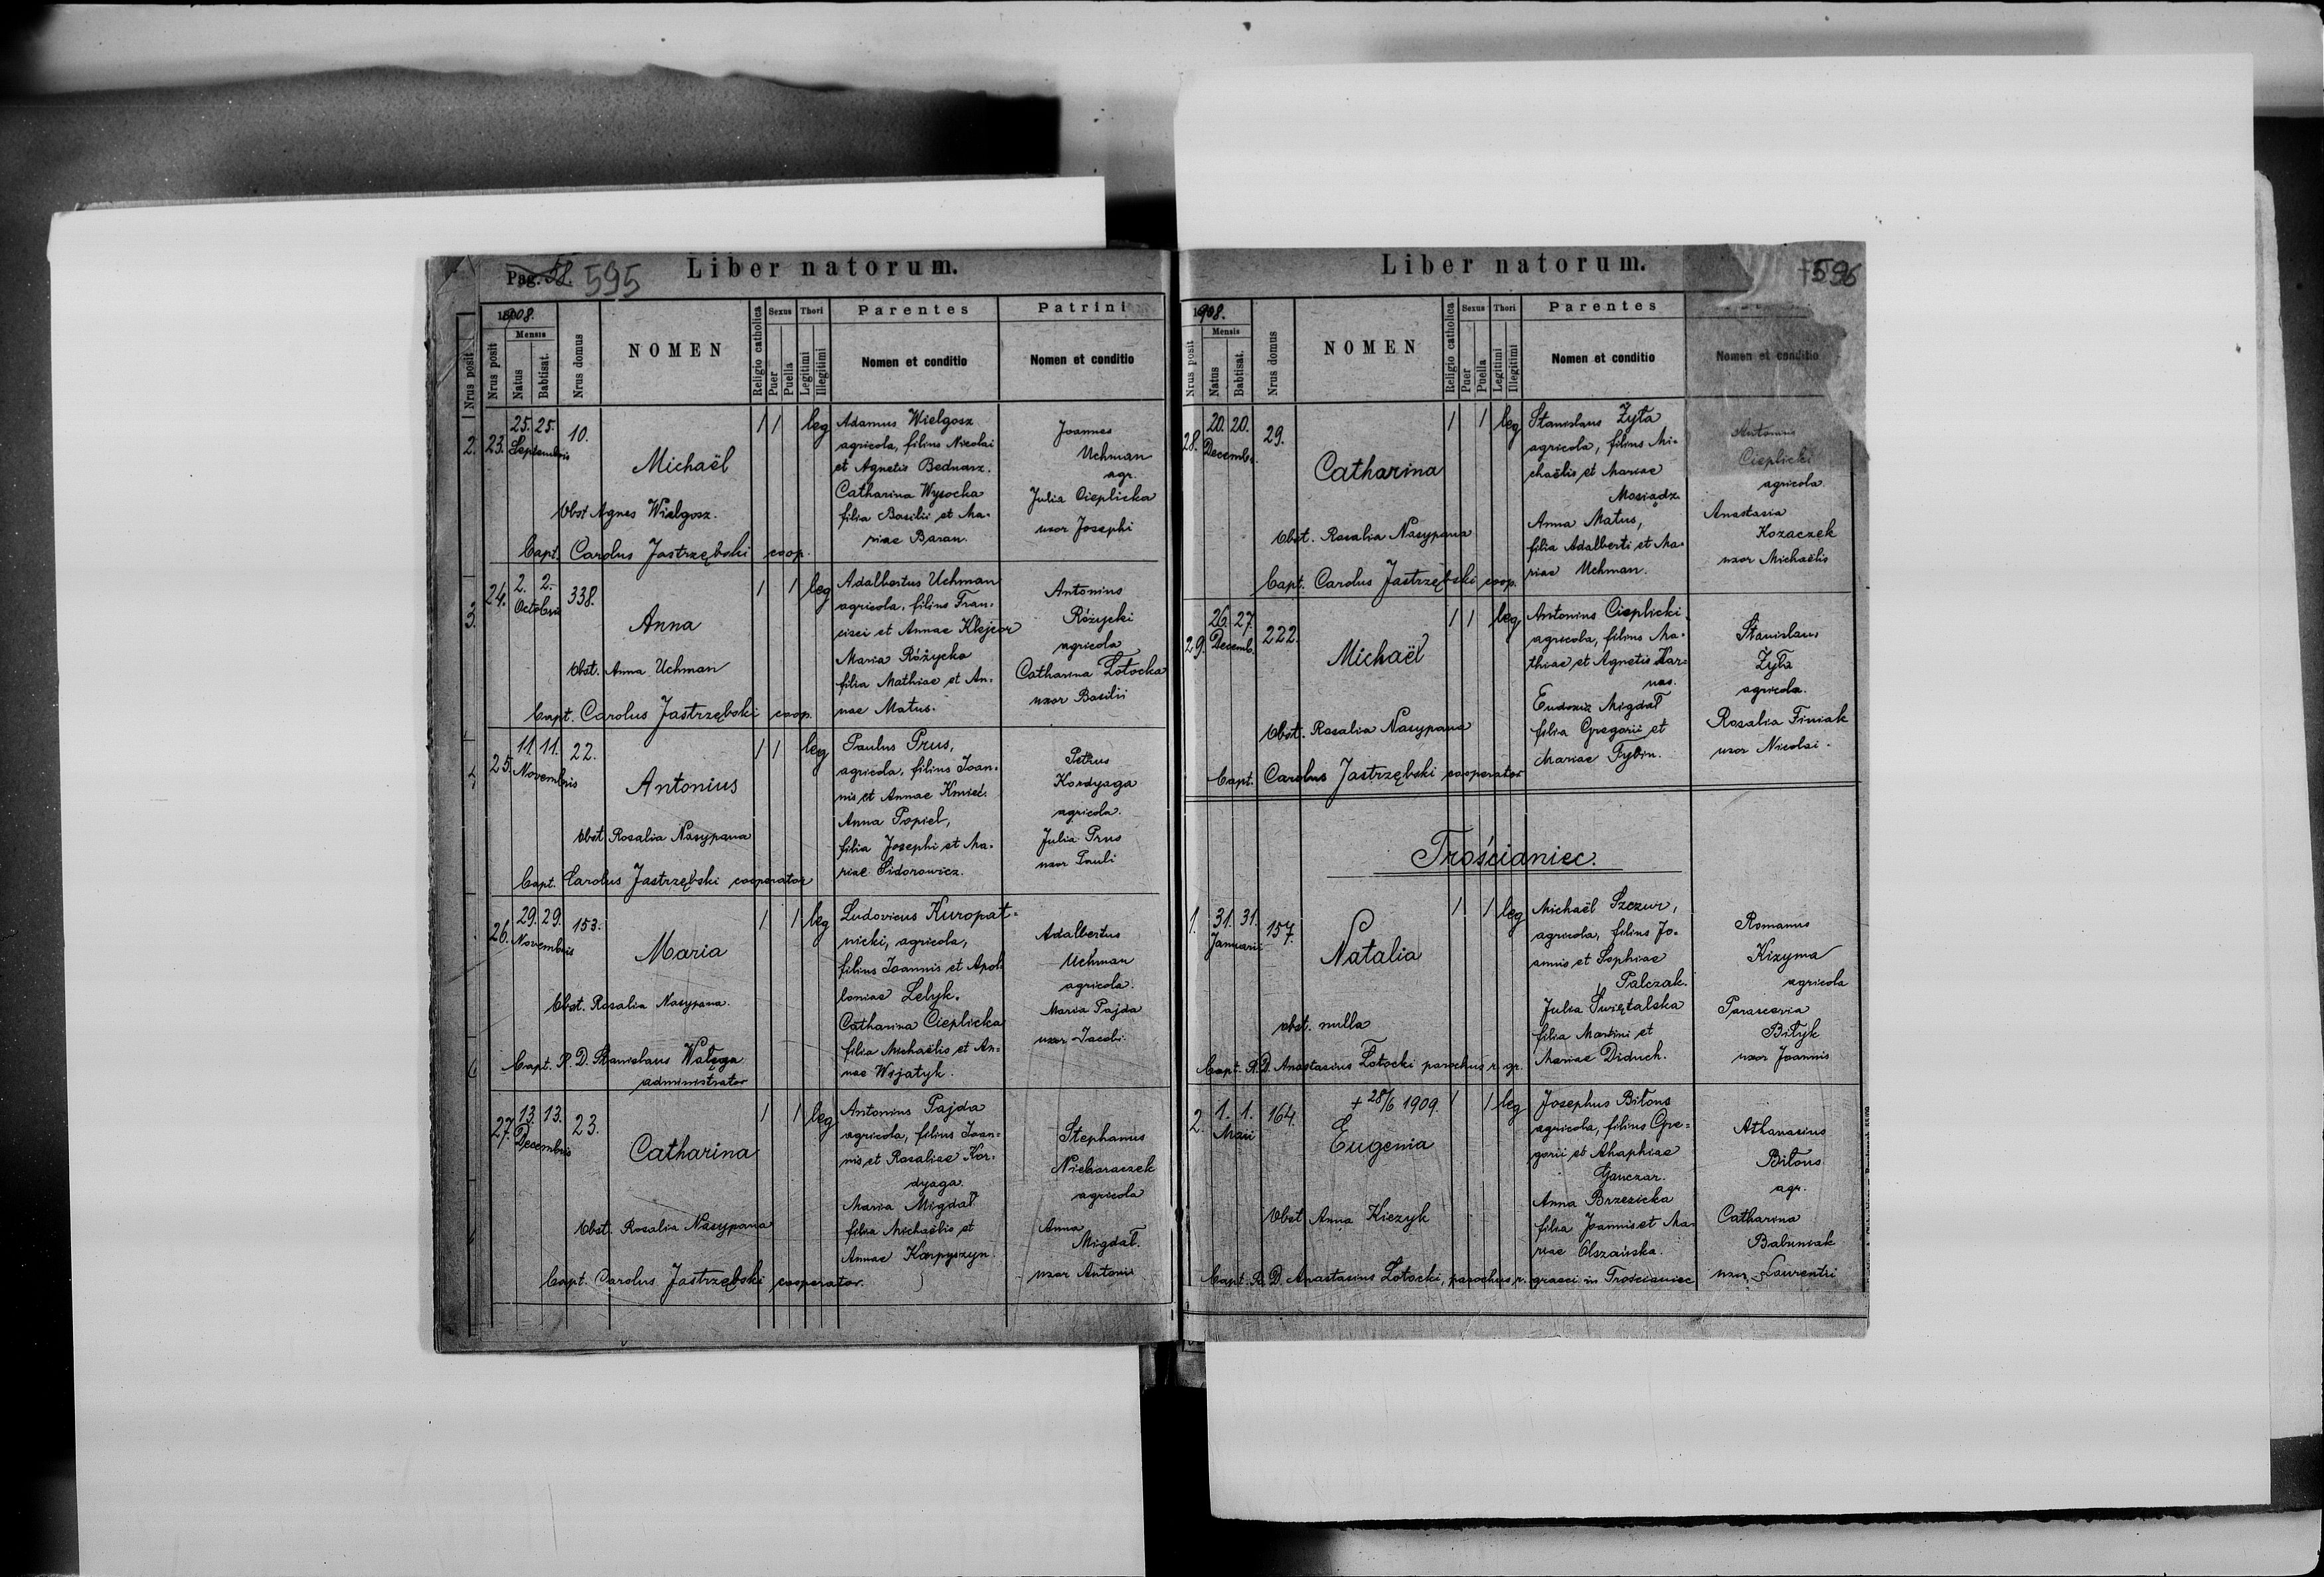 Pag. 52. 595
Liber natorum.
1908.
Nrus posit
Nrus posit
Mensis
Natus
Babtisat.
Nrus domus
NOMEN
Religio catholica
Sexus
Puer
Puella
Thori
Legitimi
Illegitimi
Parentes
Nomen et conditio
Patrini
Nomen et conditio
2. 23. 25. 25. 10. 1 1 leg
Septembris
Michaël
Obst Agnes Wielgosz.
Adamus Wielgosz
agricola, filius Nicolai
et Agnetis Bednarz.
Catharina Wysocka
filia Basilii et Ma-
riae Baran.
Joannes
Uchman
agr.
Julia Cieplicka
uxor Josephi
Bapt. Carolus Jastrzębski coop.
3. 24. 2. 2. 338. 1 1 leg
Octobris
Anna
Obst. Anna Uchman
Adalbertus Uchman
agricola, filius Fran-
cisci et Annae Klejcor
Maria Różycka
filia Mathiae et An-
nae Matus.
Antonius
Różycki
agricola
Catharina Łotocka
uxor Basilii
Bapt. Carolus Jastrzębski coop.
25. 11. 11. 22. 1 1 leg
Novembris
Antonius
Obst Rosalia Nasypana
Paulus Prus,
agricola, filius Joan-
nis et Annae Kmieć.
Anna Popiel,
filia Josephi et Ma-
riae Sidorowicz.
Petrus
Kordyaga
agricola.
Julia Prus
uxor Pauli
Bapt. Carolus Jastrzębski cooperator
26. 29. 29. 153. 1 1 leg
Novembris
Maria
Obst. Rosalia Nasypana.
Ludovicus Kuropat-
nicki, agricola,
filius Joannis et Apol-
loniae Lelyk.
Catharina Cieplicka
filia Michaëlis et An-
nae Wijatyk.
Adalbertus
Uchman
agricola.
Maria Pajda
uxor Jacobi.
Bapt. R. D. Stanislaus Wałęga
administrator
27. 13. 13. 23. 1 1 leg
Decembris
Catharina
Obst. Rosalia Nasypana
Antonius Pajda
agricola, filius Joan-
nis et Rosaliae Kor-
dyaga.
Maria Migdał
filia Michaëlis et
Annae Karpyszyn
Stephanus
Nieharaczek
agricola
Anna
Migdał.
uxor Antonii
Bapt. Carolus Jastrzębski cooperator.
Liber natorum.
596
1908.
Nrus posit
Mensis
Natus
Babtisat.
Nrus domus
NOMEN
Religio catholica
Sexus
Puer
Puella
Thori
Legitimi
Illegitimi
Parentes
Nomen et conditio
Nomen et conditio
28. 20. 20. 29. 1 1 leg
Decemb.
Catharina
Obst. Rosalia Nasypana
Stanislaus Żyła
agricola, filius Mi-
chaëlis et Mariae
Mosiądz.
Anna Matus,
filia Adalberti et Ma-
riae Uchman.
Antonius
Cieplicki
agricola
Anastasia
Kozaczek
uxor Michaëlis
Bapt. Carolus Jastrzębski coop.
29. 26. 27. 222. 1 1 leg
Decemb.
Michaël
Obst. Rosalia Nasypana
Antonius Cieplicki
agricola, filius Ma-
thiae et Agnetis Kar-
nas.
Eudoxia Migdał
filia Gregorii et
Mariae Trybin.
Stanislaus
Żyła
agricola.
Rosalia Finiak
uxor Nicolai.
Bapt. Carolus Jastrzębski cooperator
Trościaniec.
1. 31. 31. 157. 1 1 leg
Januarii
Natalia
obst. nulla
Michaël Szczur,
agricola, filius Jo-
annis et Sophiae
Palczak.
Julia Świętalska
filia Martini et
Mariae Diduch.
Romanus
Kizyma
agricola
Parascevia
Bityk
uxor Joannis
Bapt. R. D. Anastasius Łotocki parochus r. gr.
2. 1. 1. 164. + 28/6 1909. 1 1 leg
Maii
Eugenia
Obst Anna Kiczyk
Josephus Biłous
agricola, filius Gre-
gorii et Ahaphiae
Ganczar.
Anna Brzezicka
filia Joannis et Ma-
riae Olszańska.
Athanasius
Biłous
agr.
Catharina
Babuniak
uxor Laurentii
Bapt. R. D. Anastasius Łotocki, parochus r. graeci in Trościaniec